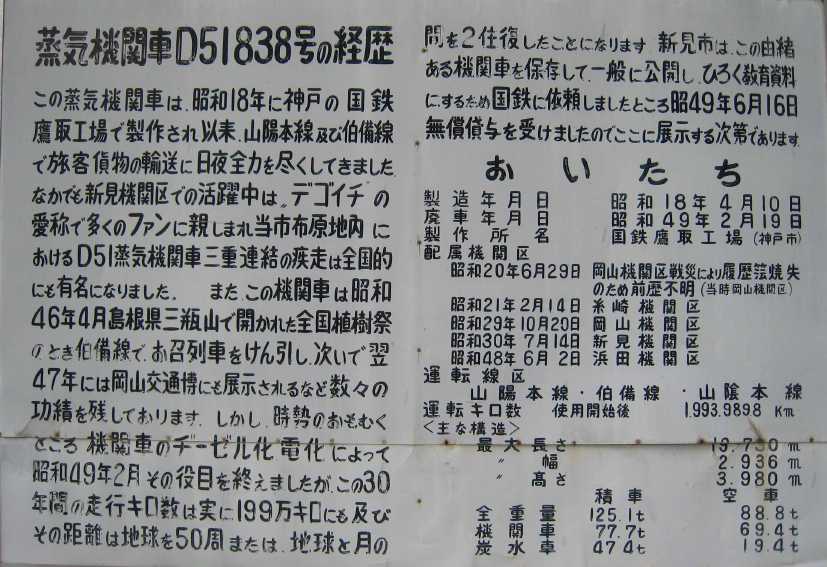 蒸気機関車D51838号の経歴
この蒸気機関車は、昭和18年に神戸の国鉄
鷹取工場で製作され以来、山陽本線及び伯備線
で旅客貨物の輸送に日夜全力を尽くしてきました
なかでも新見機関区での活躍中は〝デゴイチ〟の
愛称で多くのファンに親しまれ当市布原地内に
おけるD51蒸気機関車三重連結の疾走は全国的
にも有名になりました。 また、この機関車は昭和
46年4月島根県三瓶山で開かれた全国植樹祭
のとき伯備線で、お召列車をけん引し、次いで翌
47年には岡山交通博にも展示されるなど数々の
功績を残しております。しかし、時勢のおもむく
ところ機関車のヂーゼル化、電化によって
昭和49年2月その役目を終えましたが、この30
年間の走行キロ数は実に199万キロにも及び
その距離は地球を50周または、地球と月の
間を2往復したことになります。新見市は、この由緒
ある機関車を保存して、一般に公開し、ひろく教育資料
にするため国鉄に依頼しましたところ昭49年6月16日
無償貸与を受けましたのでここに展示する次第であります
おいたち
製造年月日 昭和18年4月10日
廃車年月日 昭和49年2月19日
製作所名 国鉄鷹取工場(神戸市)
配属機関区
昭和20年6月29日 岡山機関区戦災により履歴簿焼失
のため前歴不明(当時岡山機関区)
昭和21年2月14日 糸崎機関区
昭和29年10月20日 岡山機関区
昭和30年7月14日 新見機関区
昭和48年6月2日 浜田機関区
運転線区
山陽本線・伯備線・山陰本線
運転キロ数 使用開始後 1.993.989.8 Km
<主な構造>
最大長さ 19.730 m
〃 幅 2.936 m
〃 高さ 3.980 m
積車 空車
全重量 125.1t 88.8t
機関車 77.7t 69.4t
炭水車 47.4t 19.4t